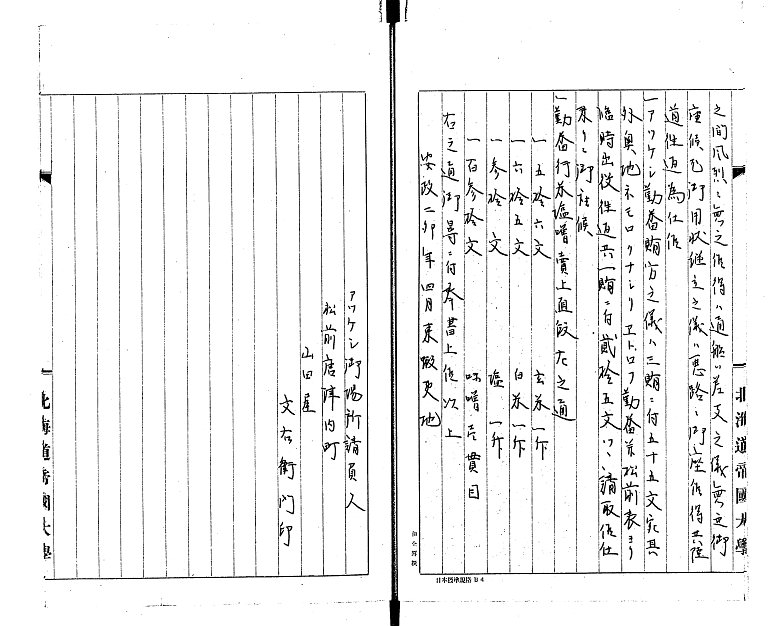 之間風烈ニ無之候得ハ通船ハ差支之儀無之御
座候尤御用状継立之儀ハ悪路ニ御座候得共陸
道往返為仕候
一アツケシ勤番賄方之儀ハ三賄ニ付五十五文宛其
外奥地ネモロクナシリヱトロフ勤番并松前表ヨリ
臨時出役往返共一賄ニ付貳拾五文ツヽ請取仕
来リニ御座候
一勤番行米塩噌賣上直段左之通
一五拾六文 玄米一升
一六拾五文 白米一升
一参拾文 塩一升
一百参拾文 味噌壱貫目
右之通御尋ニ付奉書上候以上
安政二卯年四月東蝦夷地
アツケシ御場所請負人
松前唐津内町
山田屋
文右衛門印
北海道帝國大學
北海道帝國大學
日本標準規格B4